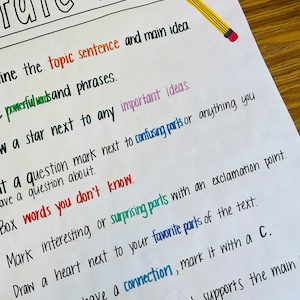 ine the topic sentence and main idea.
powerful words and phrases.
w a star next to any important ideas.
t a question mark next to confusing parts or anything you
ave a question about.
Box words you don't know.
Mark interesting or surprising parts with an exclamation point.
Draw a heart next to your favorite parts of the text.
have a connection, mark it with a C.
supports the main